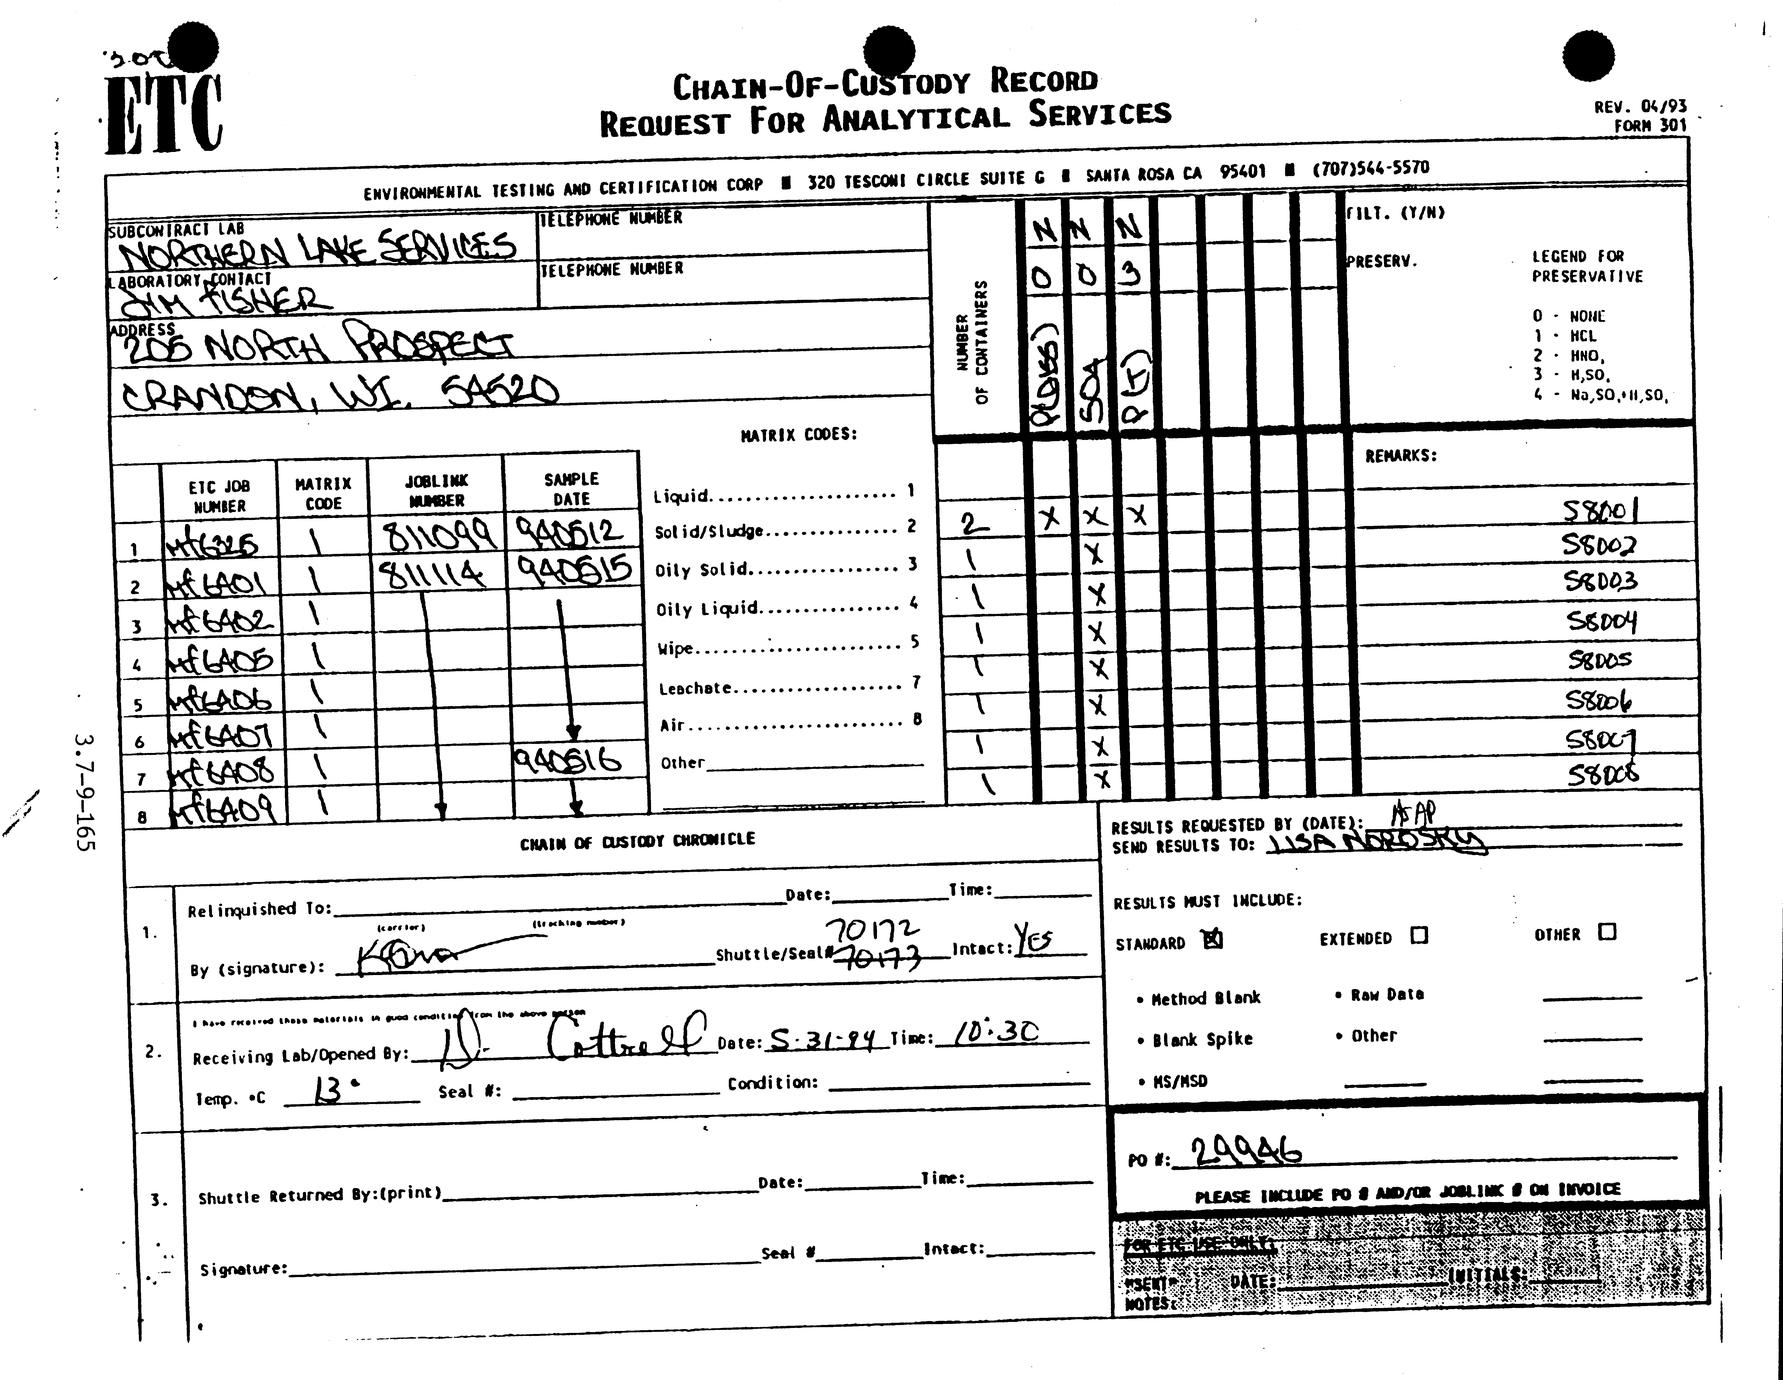 ETC
CHAIN-OF-CUSTODY RECORD
REQUEST FOR ANALYTICAL SERVICES
REV. 04/93
FORM 301
ENVIRONMENTAL TESTING AND CERTIFICATION CORP ■ 320 TESCONI CIRCLE SUITE G ■ SANTA ROSA CA 95401 ■ (707)544-5570
SUBCONTRACT LAB
NORTHERN LAKE SERVICES
TELEPHONE NUMBER
LABORATORY CONTACT
JIM FISHER
TELEPHONE NUMBER
ADDRESS
205 NORTH PROSPECT
CRANDON, WI. 54520
NUMBER OF CONTAINERS
N N N
0 0 3
P(DISS) SO4 P(T)
FILT. (Y/N)
PRESERV.
LEGEND FOR
PRESERVATIVE
0 - NONE
1 - HCL
2 - HNO,
3 - H,SO,
4 - Na,SO,+H,SO,
MATRIX CODES:
Liquid.................... 1
Solid/Sludge.............. 2
Oily Solid................ 3
Oily Liquid............... 4
Wipe...................... 5
Leachate.................. 7
Air....................... 8
Other
REMARKS:
ETC JOB NUMBER MATRIX CODE JOBLINK NUMBER SAMPLE DATE
1 Mf6325 1 811099 940512 2 X X X S8001
2 Mf6401 1 811114 940515 1 X S8002
3 Mf6402 1 1 X S8003
4 Mf6405 1 1 X S8004
5 Mf6406 1 1 X S8005
6 Mf6407 1 1 X S8006
7 Mf6408 1 940516 1 X S8007
8 Mf6409 1 1 X S8008
CHAIN OF CUSTODY CHRONICLE
RESULTS REQUESTED BY (DATE): ASAP
SEND RESULTS TO: LISA NOROSKY
RESULTS MUST INCLUDE:
STANDARD ☒ EXTENDED ☐ OTHER ☐
• Method Blank • Raw Data
• Blank Spike • Other
• MS/MSD
1. Relinquished To: Date: Time:
(carrier) (tracking number)
By (signature): Shuttle/Seal# 70172 70173 Intact: YES
I have received these materials in good condition from the above person
2. Receiving Lab/Opened By: D. Cottrell Date: 5-31-94 Time: 10:30
Temp. °C 13° Seal #: Condition:
3. Shuttle Returned By:(print) Date: Time:
Signature: Seal # Intact:
PO #: 29946
PLEASE INCLUDE PO # AND/OR JOBLINK # ON INVOICE
FOR ETC USE ONLY:
"SENT" DATE: INITIALS:
NOTES:
3.7-9-165